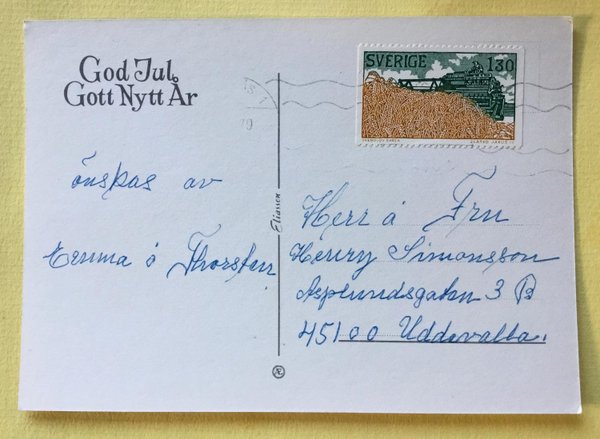 God Jul
Gott Nytt År
önskas av
Emma ó Thorsten
Eliassen
SVERIGE 130
Herr á Fru
Henry Simonsson
Asplundsgatan 3 B
45100 Uddevalla.